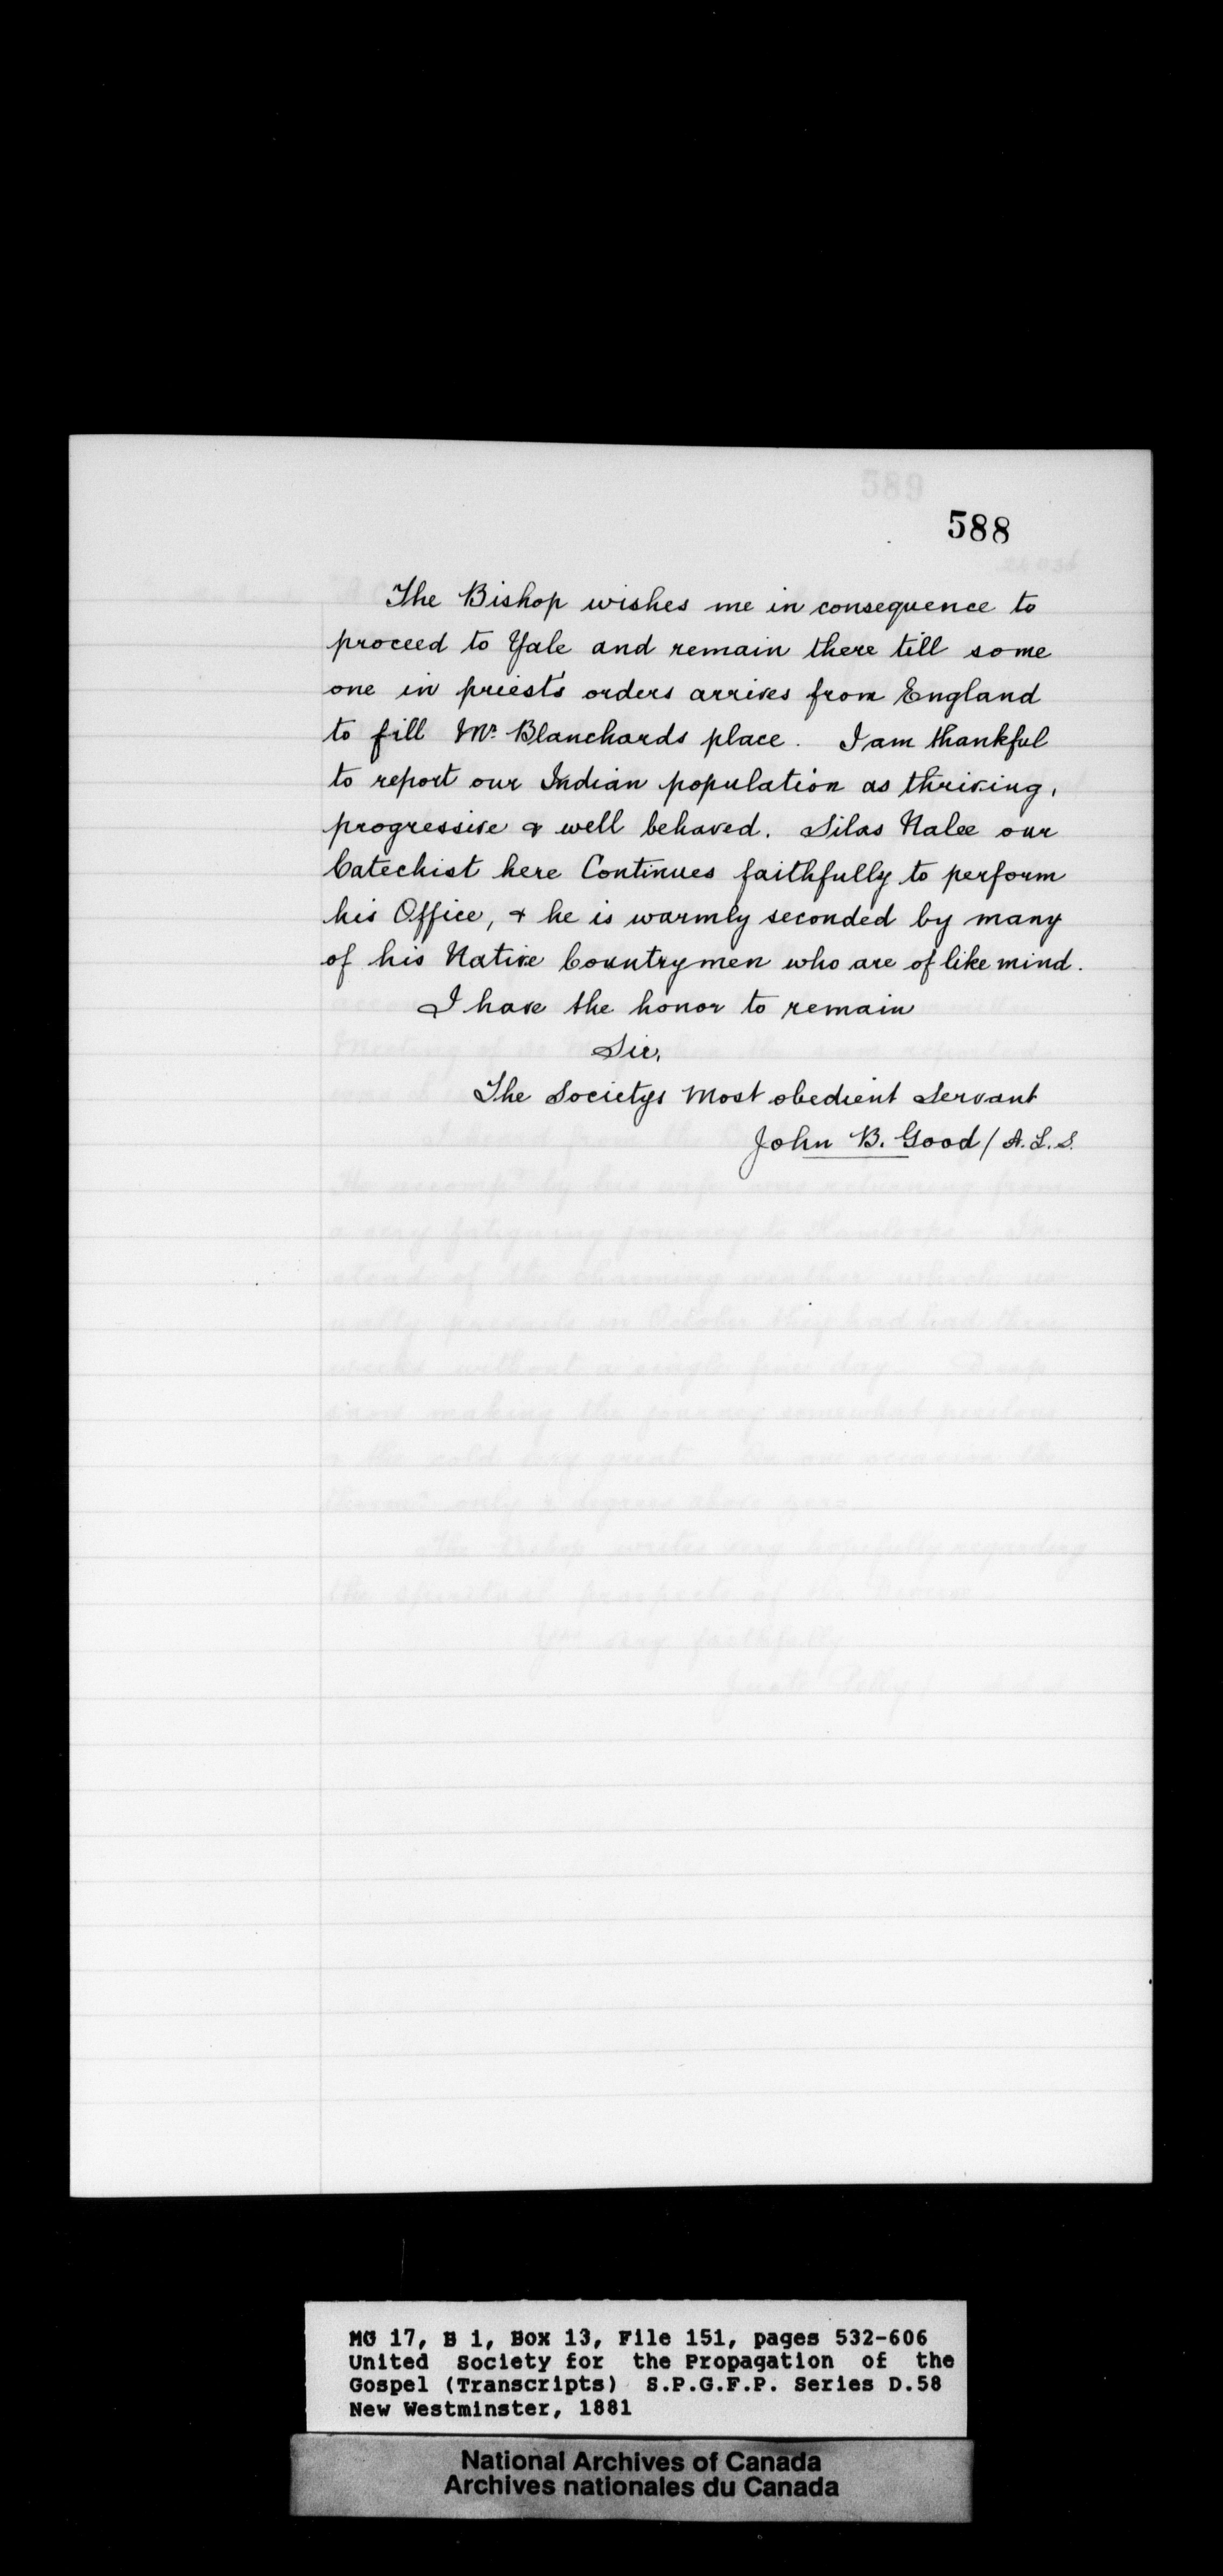 588
The Bishop wishes me in consequence to
proceed to Yale and remain there till some
one in priest's orders arrives from England
to fill Mr. Blanchards place. I am thankful
to report our Indian population as thriving,
progressive & well behaved. Silas Nalee our
Catechist here Continues faithfully to perform
his Office, & he is warmly seconded by many
of his Native Countrymen who are of like mind.
I have the honor to remain
Sir,
The Societys Most obedient Servant
John B. Good / A.L.S.
MG 17, B 1, Box 13, File 151, pages 532-606
United Society for the Propagation of the
Gospel (Transcripts) S.P.G.F.P. Series D.58
New Westminster, 1881
National Archives of Canada
Archives nationales du Canada